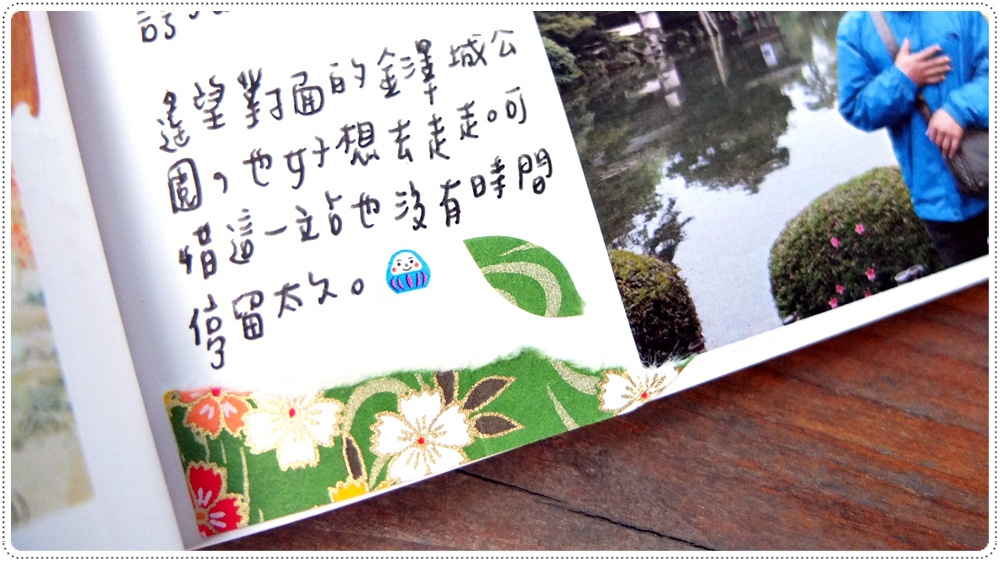 遙望對面的金澤城公
園，也好想去走走。可
惜這一站也沒有時間
停留太久。